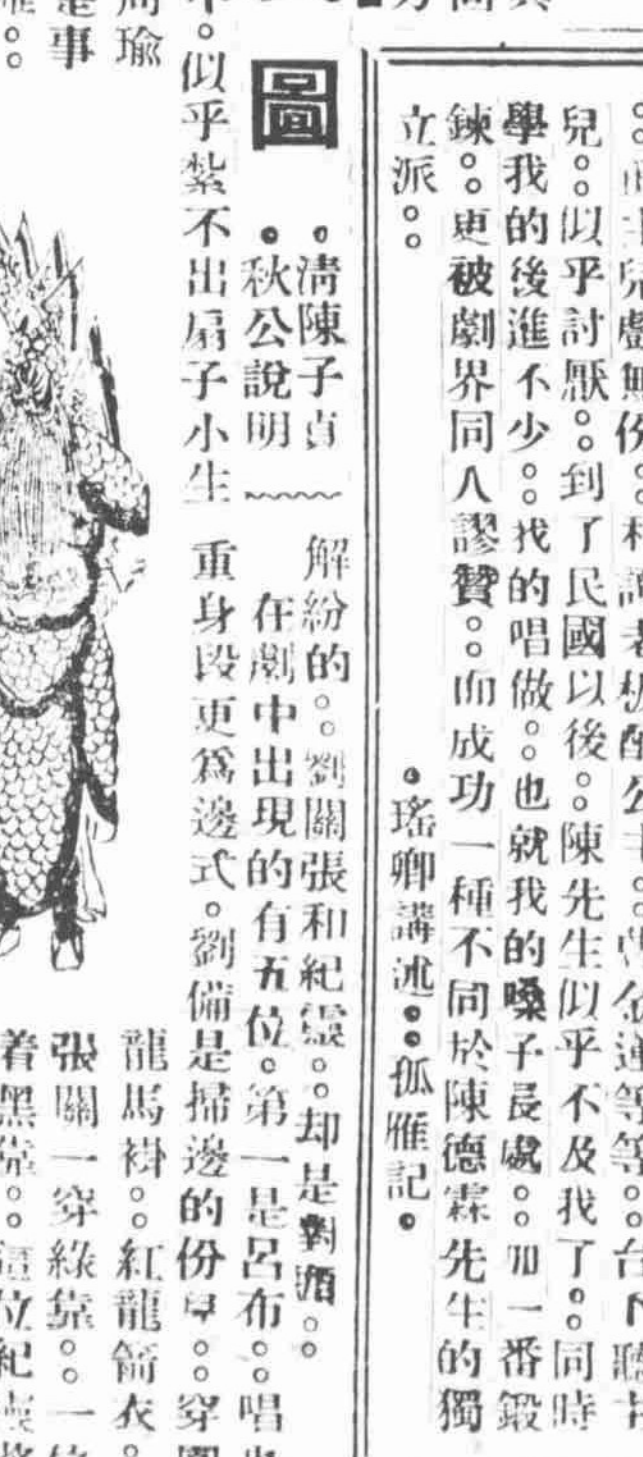 兒。。似乎討厭。。到了民國以後。。陳先生似乎不及我了。。同時
學我的後進不少。。找的唱做。。也就我的嗓子長處。。加一番鍛
鍊。。更被劇界同人謬贊。。而成功一種不同於陳德霖先生的獨
立派。。
●瑤卿講述●●孤雁記●
圖
●清陳子貞
●秋公說明
解紛的。。劉關張和紀靈。。却是對頭。。
在劇中出現的有五位。第一是呂布。。唱
似乎紮不出扇子小生
重身段更爲邊式。劉備是掃邊的份。。穿
周瑜
事
龍馬褂。。紅龍箭衣。
張關一穿綠靠。。一
着黑靠。。這位紀